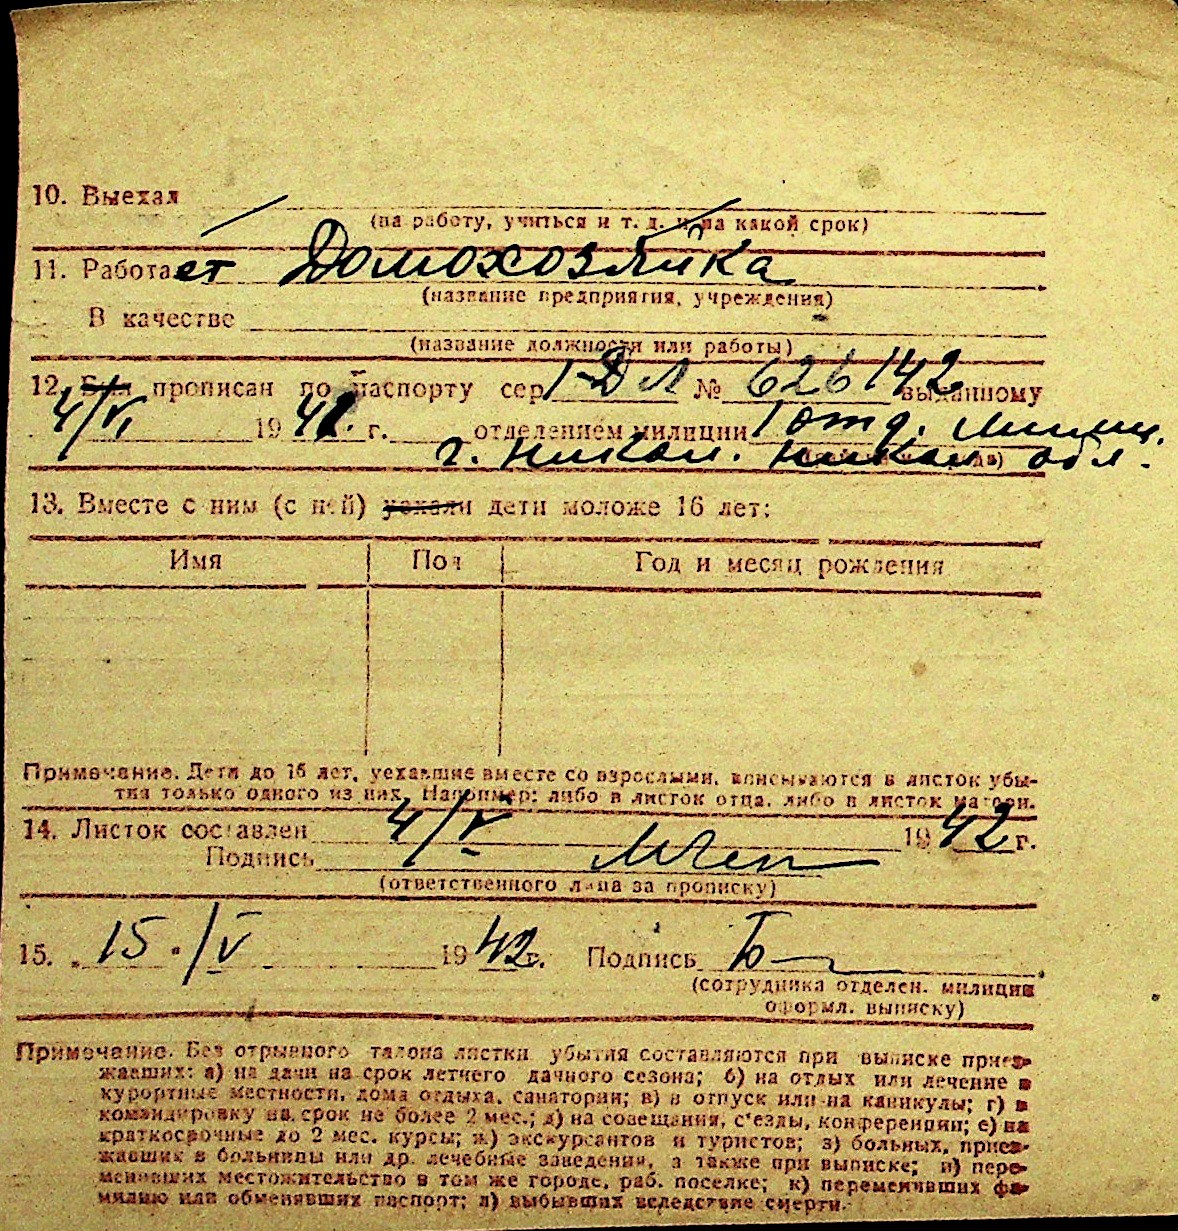 10. Выехал
(на работу, учиться и т. д. и на какой срок)
11. Работает Домохозяйка
(название предприятия, учреждения)
В качестве
(название должности или работы)
12. Был прописан по паспорту сер I-ДЛ № 626142 выданному
4/VI 1941. г. отделением милиции 1 отд. милиц.
г. Никол. Никол обл.
13. Вместе с ним (с ней) уехали дети моложе 16 лет:
Имя Пол Год и месяц рождения
Примечание. Дети до 16 лет, уехавшие вместе со взрослыми, вписываются в листок убы-
тия только одного из них. Например: либо в листок отца, либо в листок матери.
14. Листок составлен 4/V 1942 г.
Подпись
(ответственного лица за прописку)
15. „15.“/V 1942 г. Подпись
(сотрудника отделен. милиции
оформл. выписку)
Примечание. Без отрывного талона листки убытия составляются при выписке приез-
жавших: а) на дачи на срок летнего дачного сезона; б) на отдых или лечение в
курортные местности, дома отдыха, санатории; в) в отпуск или на каникулы; г) в
командировку на срок не более 2 мес.; д) на совещания, с'езды, конференции; е) на
краткосрочные до 2 мес. курсы; ж) экскурсантов и туристов; з) больных, приез-
жавших в больницы или др. лечебные заведения, а также при выписке; и) пере-
менивших местожительство в том же городе, раб. поселке; к) переменивших фа-
милию или обменявших паспорт; л) выбывших вследствие смерти.